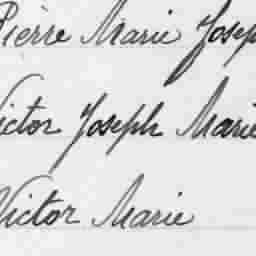 Pierre Marie Josep
ictor Joseph Marie
Victor Marie